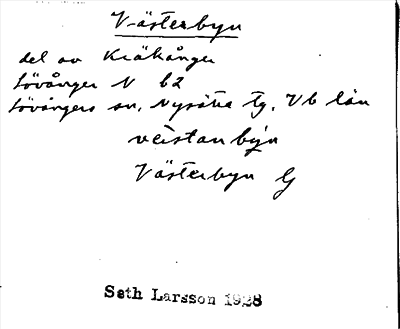 Västerbyn
del av Kräkånger
Lövånger N b2
Lövångers sn, Nysätra tg, Vb län
västanbyn
Västerbyn G
Seth Larsson 1928